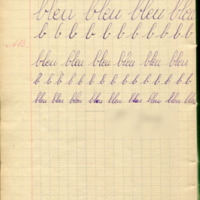 bleu bleu bleu bleu
b b b b b b b b b
bleu bleu bleu bleu bleu
b b b b b b b b b b b
bleu bleu bleu bleu bleu bleu bleu bleu